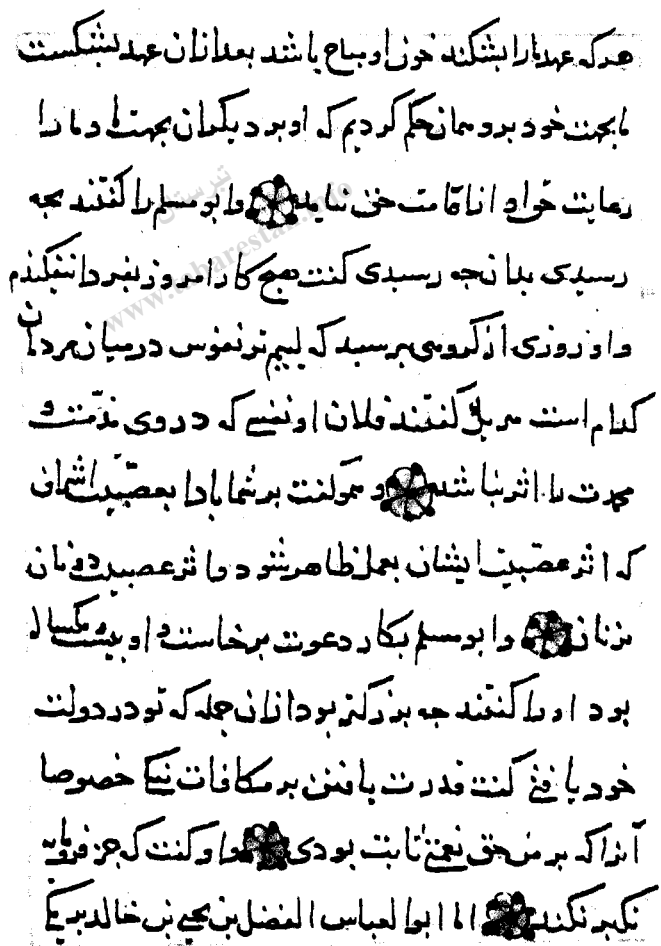 هر که عهد ما را بشکند خون او مباح باشد بعد از ان عهد بشکست
ما بجهت خود برو همان حکم کردیم که او بر دیکران بجهت ما و ما را
رعایت او از اقامت حق و ابو مسلم را کفتند بجه
رسیدی بدانجه رسیدی کفت هیچ کار امروز بفردا نیفکندم
و او روزی از کروهی برسید که لییم تر نفوس در میان مردمان
کدام است هر یکی کفتند فلان او نفسی که در وی مذمت و
محمدت را اثر نباشد و هم کفت بر شما بادا بعصبیت اشراف
که اثر عصبیت ایشان بعمل ظاهر شود و اثر عصبیت دونان
بزبان و ابو مسلم بکار دعوت برخاست و او بیست و یکساله
بود او را کفتند جه بزرکتر بود از ان جمله که تو در دولت
خود یافتی کفت قدرت یافتن بر مکافات نیکی خصوصا
آنرا که بر من حق نعمتی ثابت بودی و او کفت که جز فرومایه
تکبر نکند اما ابو العباس الفضل بن یحیی بن خالد برمکی
تبرستان
www.tabarestan.info